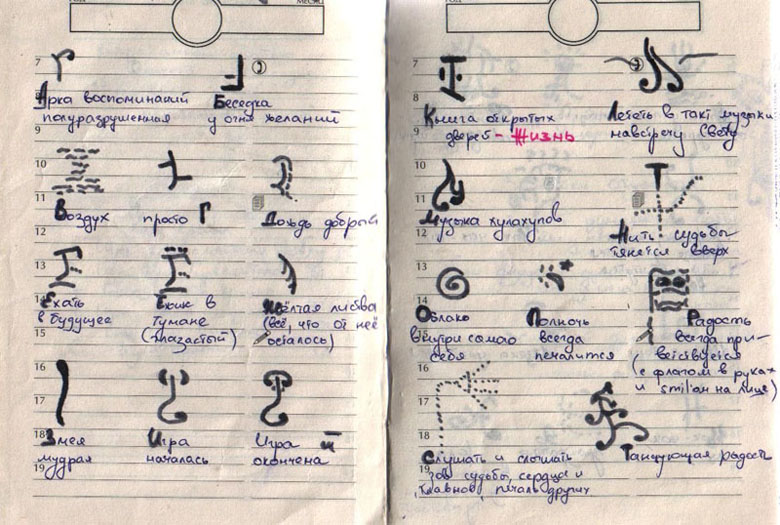 МЕСЯЦ
7
Арка воспоминаний
полуразрушенная
Беседка
у огня желаний
8
9
10
11
Воздух
просто Г
Дождь добрый
12
13
14
Ехать
в будущее
Ёжик в
тумане
(глазастый)
Жёлтая листва
(всё, что от неё
осталось)
15
16
17
18
Змея
мудрая
Игра
началась
Игра й
окончена
19
7
8
Книга открытых
дверей - Жизнь
Лететь в такт музыки
навстречу Свету
9
10
11
Музыка хулахупов
Нить судьбы
тянется вверх
12
13
14
Облако
внутри само
себя
Полночь
всегда
печалится
Радость
всегда при-
ветствуется
(с флагом в руках
и smil'ом на лице)
15
16
17
18
Слушать и слышать
зов судьбы, сердца и
главное, печаль других
Танцующая радость
19